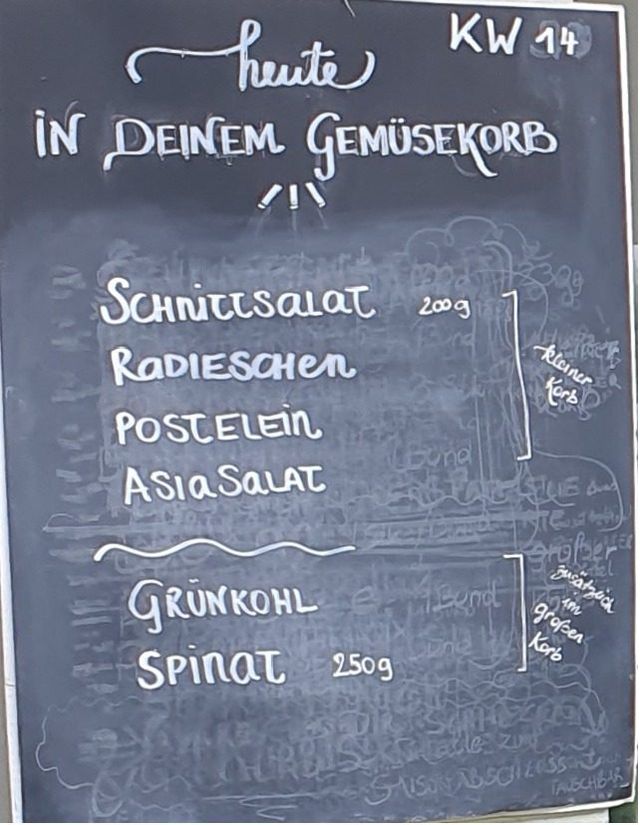 KW 14
heute
IN DEINEM GEMÜSEKORB
SCHNITTSALAT 200g
RADIESCHEN
kleiner
Korb
POSTELEIN
ASIASALAT
GRÜNKOHL
SPINAT 250g
zusätzlich
im
großen
Korb